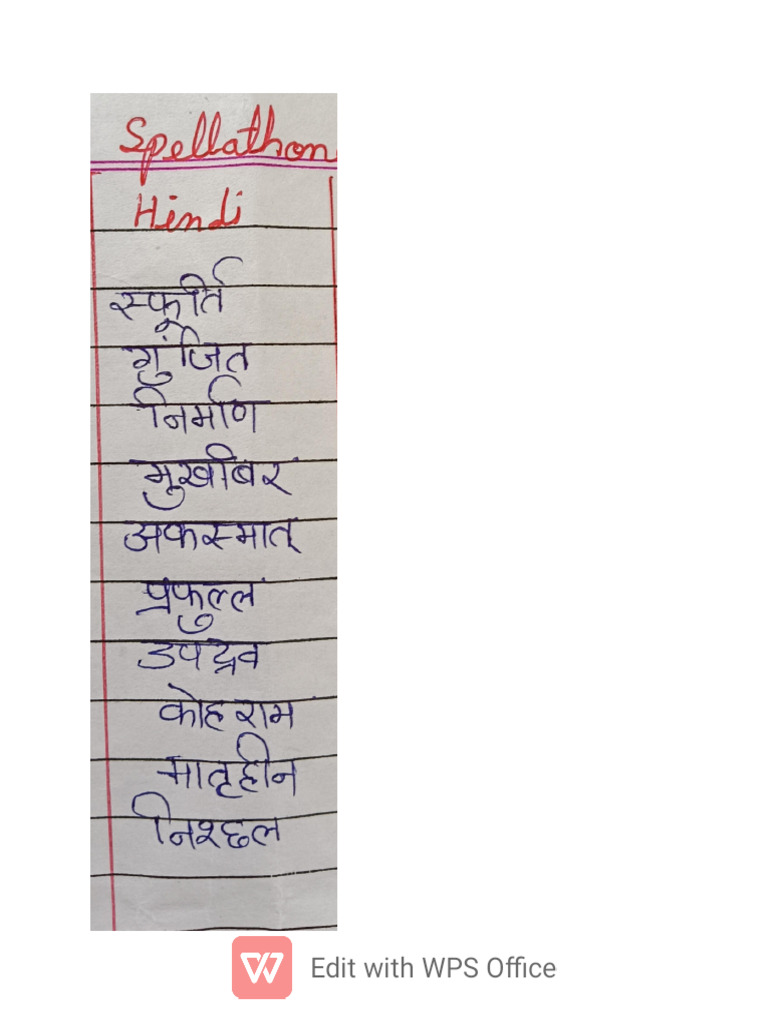 Spellathon
Hindi
स्फूर्ति
गुंजित
निर्माण
मुखबिर
अकस्मात्
प्रफुल्ल
उपद्रव
कोहराम
मातृहीन
निश्छल
Edit with WPS Office